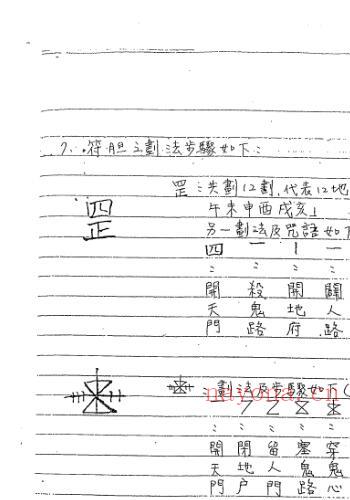 7、符胆之劃法步驟如下：
罡：共劃12劃,代表12地
午未申酉戌亥」
罡
另一劃法及咒語如下
四 一 丨 一
： ： ： ：
開 殺 開 闢
天 鬼 地 人
門 路 府 路
：劃法及步驟如下(
： ： ： ： ：
開 閉 留 塞 穿
天 地 人 鬼 鬼
門 户 門 路 心